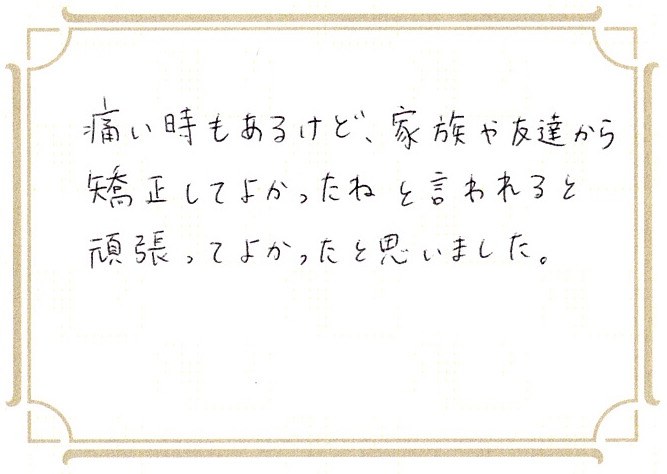 痛い時もあるけど、家族や友達から
矯正してよかったねと言われると
頑張ってよかったと思いました。